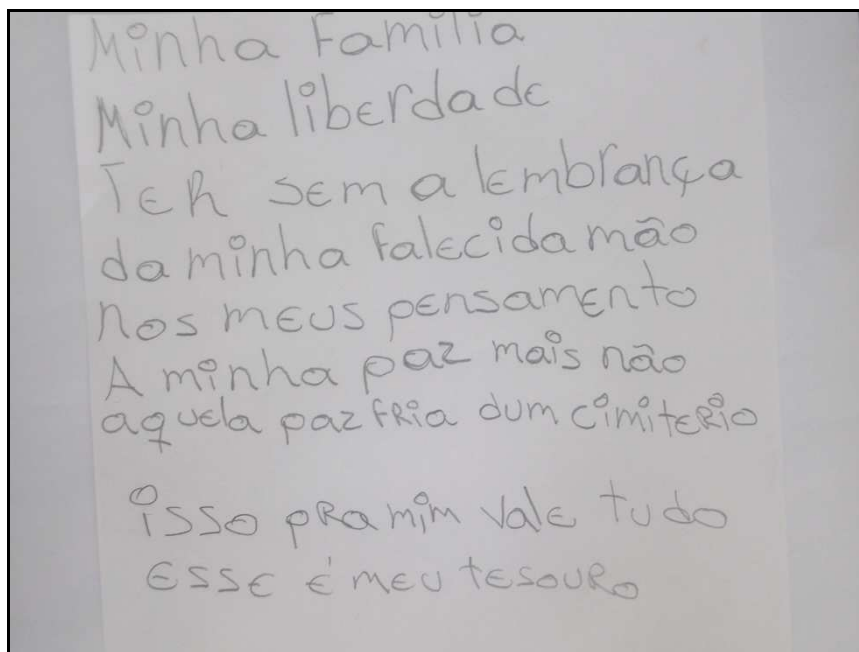 Minha Familia
Minha liberdade
TER sem a lembrança
da minha falecida mão
nos meus pensamento
A minha paz mais não
aquela paz fria dum cimiterio
isso pra mim vale tudo
esse é meu tesouro